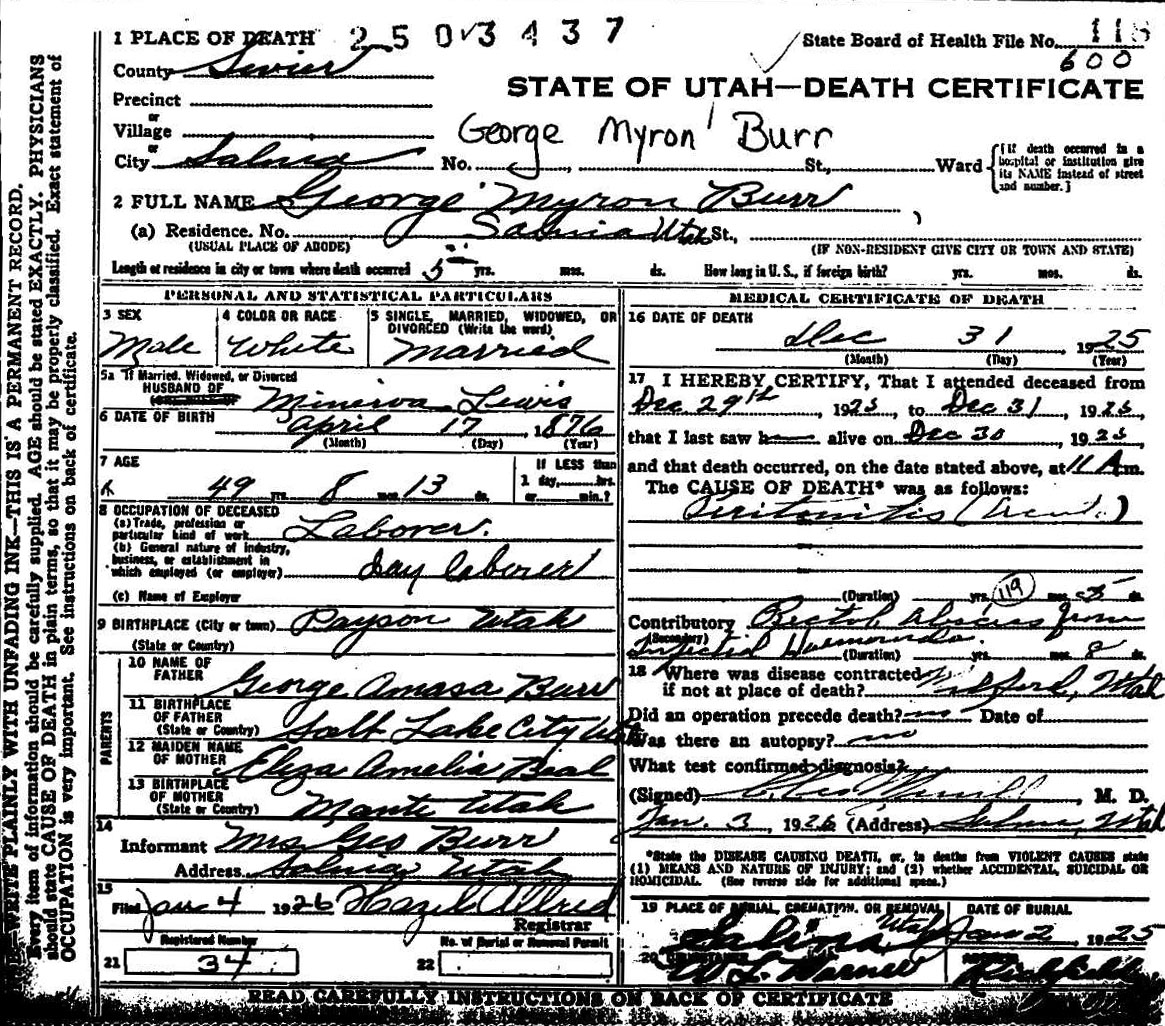 1 PLACE OF DEATH 2503437
State Board of Health File No. 118
600
County Sevier
STATE OF UTAH—DEATH CERTIFICATE
Precinct
or
Village
George Myron Burr
or
City Salina No. St., Ward
{If death occurred in a hospital or institution give its NAME instead of street and number.}
2 FULL NAME George Myron Burr
(a) Residence. No. Salina Utah St.,
(USUAL PLACE OF ABODE) (IF NON-RESIDENT GIVE CITY OR TOWN AND STATE)
Length of residence in city or town where death occurred 5 yrs. mos. ds. How long in U. S., if foreign birth? yrs. mos. ds.
PERSONAL AND STATISTICAL PARTICULARS
3 SEX
Male
4 COLOR OR RACE
White
5 SINGLE, MARRIED, WIDOWED, OR
DIVORCED (Write the word)
Married
5a If Married, Widowed, or Divorced
HUSBAND OF
Minerva Lewis
6 DATE OF BIRTH April 17 1876
(Month) (Day) (Year)
7 AGE
49 yrs. 8 mos. 13 ds.
If LESS than
1 day, hrs.
or min.?
8 OCCUPATION OF DECEASED
(a) Trade, profession or
particular kind of work Laborer.
(b) General nature of industry,
business, or establishment in
which employed (or employer) Day laborer
(c) Name of Employer
9 BIRTHPLACE (City or town) Payson Utah
(State or Country)
PARENTS
10 NAME OF
FATHER George Amasa Burr
11 BIRTHPLACE
OF FATHER
(State or Country) Salt Lake City Utah
12 MAIDEN NAME
OF MOTHER Eliza Amelia Beal
13 BIRTHPLACE
OF MOTHER
(State or Country) Manti Utah
14
Informant Mrs Geo Burr
Address Salina Utah
15
Filed Jan 4 1926 Hazel Allred
Registrar
Registered Number
21 34
No. of Burial or Removal Permit
22
MEDICAL CERTIFICATE OF DEATH
16 DATE OF DEATH
Dec 31 1925
(Month) (Day) (Year)
17 I HEREBY CERTIFY, That I attended deceased from
Dec 29th, 1925 to Dec 31, 1925
that I last saw h alive on Dec 30, 1925
and that death occurred, on the date stated above, at 11 A m.
The CAUSE OF DEATH* was as follows:
Peritonitis
(Duration) yrs. 119 mos. 5 ds.
Contributory Rectal Abscess from
(Secondary)
Infected Haemorrhoids.
(Duration) yrs. mos. 8 ds.
18 Where was disease contracted
if not at place of death? Milford, Utah
Did an operation precede death? no Date of
Was there an autopsy? no
What test confirmed diagnosis?
(Signed) M. D.
Jan. 3, 1926 (Address) Salina, Utah
*State the DISEASE CAUSING DEATH, or, in deaths from VIOLENT CAUSES state
(1) MEANS AND NATURE OF INJURY; and (2) whether ACCIDENTAL, SUICIDAL OR
HOMICIDAL. (See reverse side for additional space.)
19 PLACE OF BURIAL, CREMATION, OR REMOVAL
Salina Utah
DATE OF BURIAL
Jan 2, 1925
20
Richfield
READ CAREFULLY INSTRUCTIONS ON BACK OF CERTIFICATE
WRITE PLAINLY WITH UNFADING INK—THIS IS A PERMANENT RECORD.
Every item of information should be carefully supplied. AGE should be stated EXACTLY. PHYSICIANS
should state CAUSE OF DEATH in plain terms, so that it may be properly classified. Exact statement of
OCCUPATION is very important. See instructions on back of certificate.